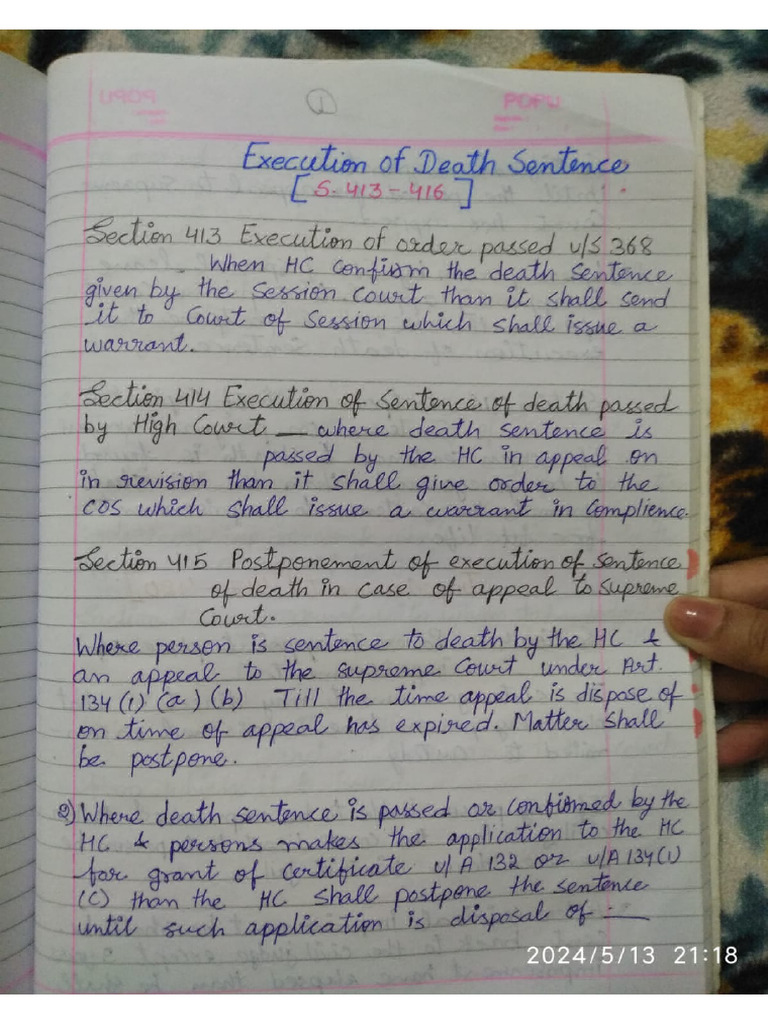 ①
POPU
Execution of Death Sentence
[S. 413 - 416]
Section 413 Execution of order passed u/S 368
When HC confirm the death sentence
given by the Session Court than it shall send
it to Court of Session which shall issue a
warrant.
Section 414 Execution of Sentence of death passed
by High Court — where death sentence is
passed by the HC in appeal or
in revision than it shall give order to the
COS which shall issue a warrant in Complience.
Section 415 Postponement of execution of sentence
of death in case of appeal to supreme
Court.
Where person is sentence to death by the HC &
an appeal to the supreme Court under Art.
134 (1) (a) (b) Till the time appeal is dispose of
or time of appeal has expired. Matter shall
be postpone.
2) Where death sentence is passed or confirmed by the
HC & persons makes the application to the HC
for grant of Certificate u/A 132 or u/A 134(1)
(C) than the HC Shall postpone the sentence
until such application is disposal of :—
2024/5/13 21:18